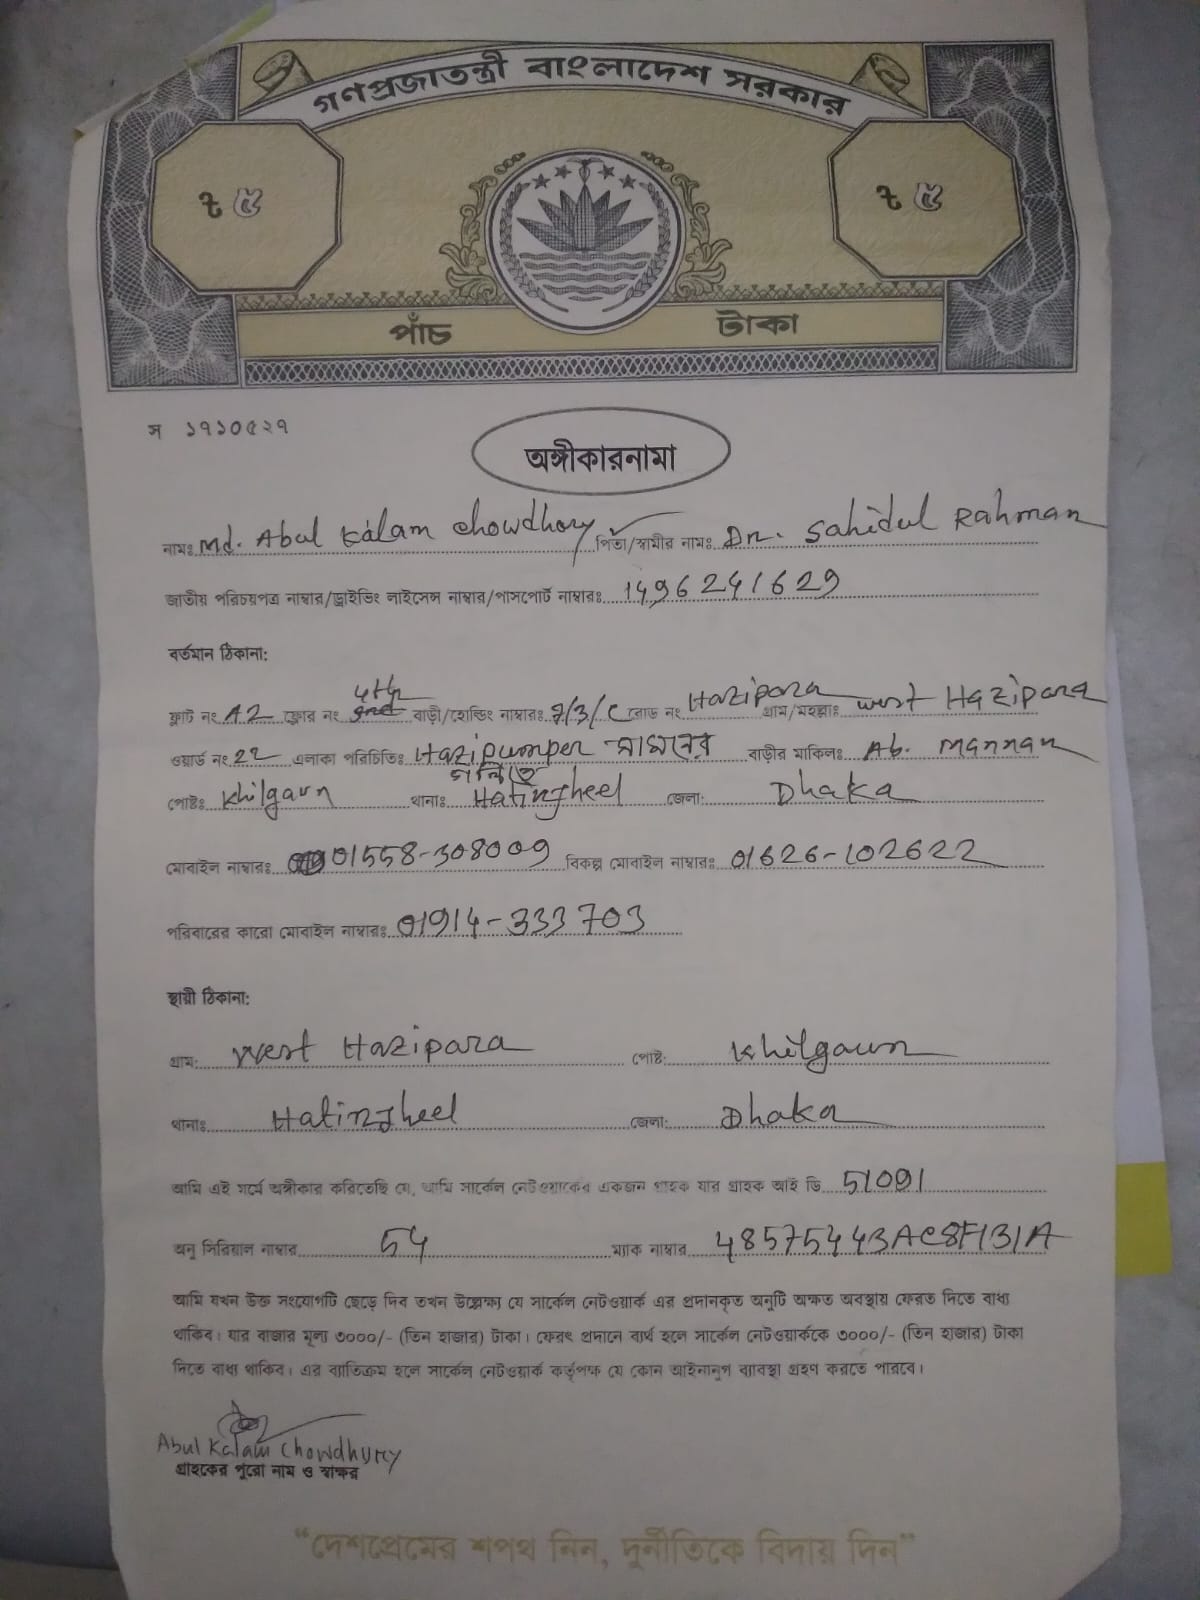 গণপ্রজাতন্ত্রী বাংলাদেশ সরকার
৳ ৫
৳ ৫
পাঁচ টাকা
স ১৭১০৫২৭
অঙ্গীকারনামা
নামঃ Md. Abul Kalam Chowdhory পিতা/স্বামীর নামঃ Dr. Sahidul Rahman
জাতীয় পরিচয়পত্র নাম্বার/ড্রাইভিং লাইসেন্স নাম্বার/পাসপোর্ট নাম্বারঃ 1496241629
বর্তমান ঠিকানা:
ফ্লাট নং A2 ফ্লোর নং 4th বাড়ী/হোল্ডিং নাম্বারঃ 7/3/C রোড নং Hazipara গ্রাম/মহল্লাঃ west Hazipara
ওয়ার্ড নং 22 এলাকা পরিচিতিঃ Hazipumper সামনের গলিতে বাড়ীর মালিকঃ Ab. Mannan
পোষ্টঃ Khilgaun থানাঃ Hatirjheel জেলা: Dhaka
মোবাইল নাম্বারঃ 01558-308009 বিকল্প মোবাইল নাম্বারঃ 01626-102622
পরিবারের কারো মোবাইল নাম্বারঃ 01914-333703
স্থায়ী ঠিকানা:
গ্রাম: West Hazipara পোষ্ট: Khilgaun
থানাঃ Hatirjheel জেলা: Dhaka
আমি এই মর্মে অঙ্গীকার করিতেছি যে, আমি সার্কেল নেটওয়ার্কের একজন গ্রাহক যার গ্রাহক আই ডি 51091
অনু সিরিয়াল নাম্বার 54 ম্যাক নাম্বার 48575443AC8F131A
আমি যখন উক্ত সংযোগটি ছেড়ে দিব তখন উল্লেক্ষ্য যে সার্কেল নেটওয়ার্ক এর প্রদানকৃত অনুটি অক্ষত অবস্থায় ফেরত দিতে বাধ্য
থাকিব। যার বাজার মূল্য ৩০০০/- (তিন হাজার) টাকা। ফেরৎ প্রদানে ব্যর্থ হলে সার্কেল নেটওয়ার্ককে ৩০০০/- (তিন হাজার) টাকা
দিতে বাধ্য থাকিব। এর ব্যাতিক্রম হলে সার্কেল নেটওয়ার্ক কর্তৃপক্ষ যে কোন আইনানুগ ব্যাবস্থা গ্রহণ করতে পারবে।
Abul Kalam Chowdhury
গ্রাহকের পুরো নাম ও স্বাক্ষর
“দেশপ্রেমের শপথ নিন, দুর্নীতিকে বিদায় দিন”